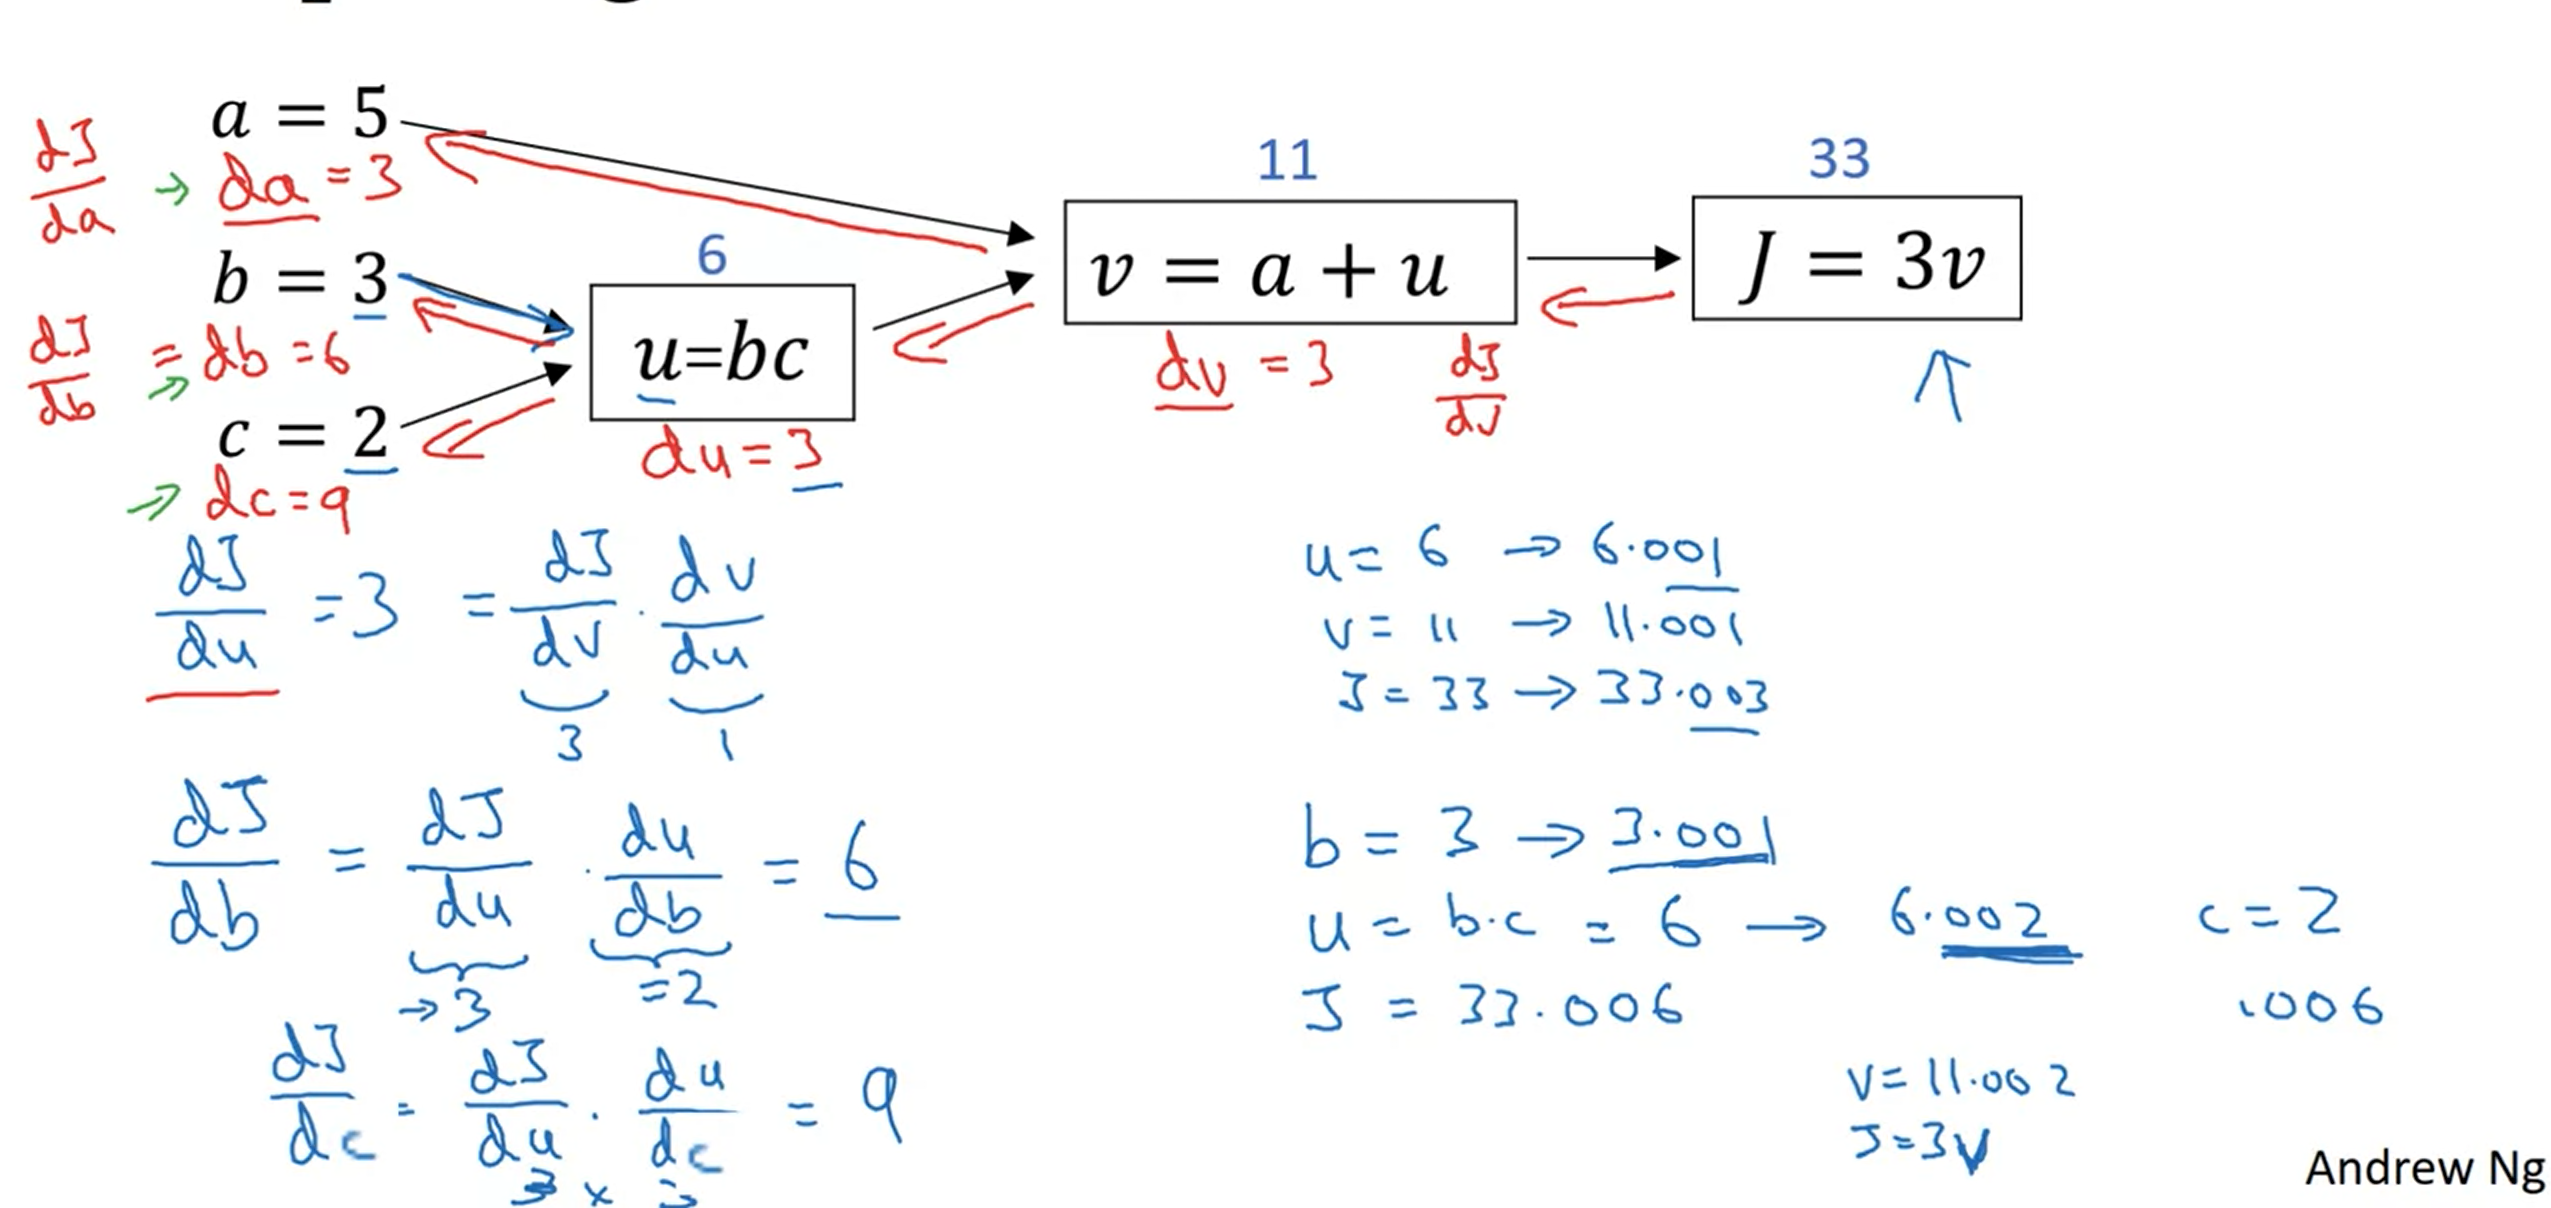 a = 5
dJ/da → da = 3
b = 3
dJ/db = db = 6
→
c = 2
→ dc = 9
6
u=bc
du = 3
11
v = a + u
dv = 3 dJ/dv
33
J = 3v
dJ/du = 3 = dJ/dv · dv/du
3 1
dJ/db = dJ/du · du/db = 6
→ 3 = 2
dJ/dc = dJ/du · du/dc = 9
3 × 3
u = 6 → 6.001
v = 11 → 11.001
J = 33 → 33.003
b = 3 → 3.001
u = b·c = 6 → 6.002 c = 2
J = 33.006 .006
v = 11.002
J = 3v
Andrew Ng